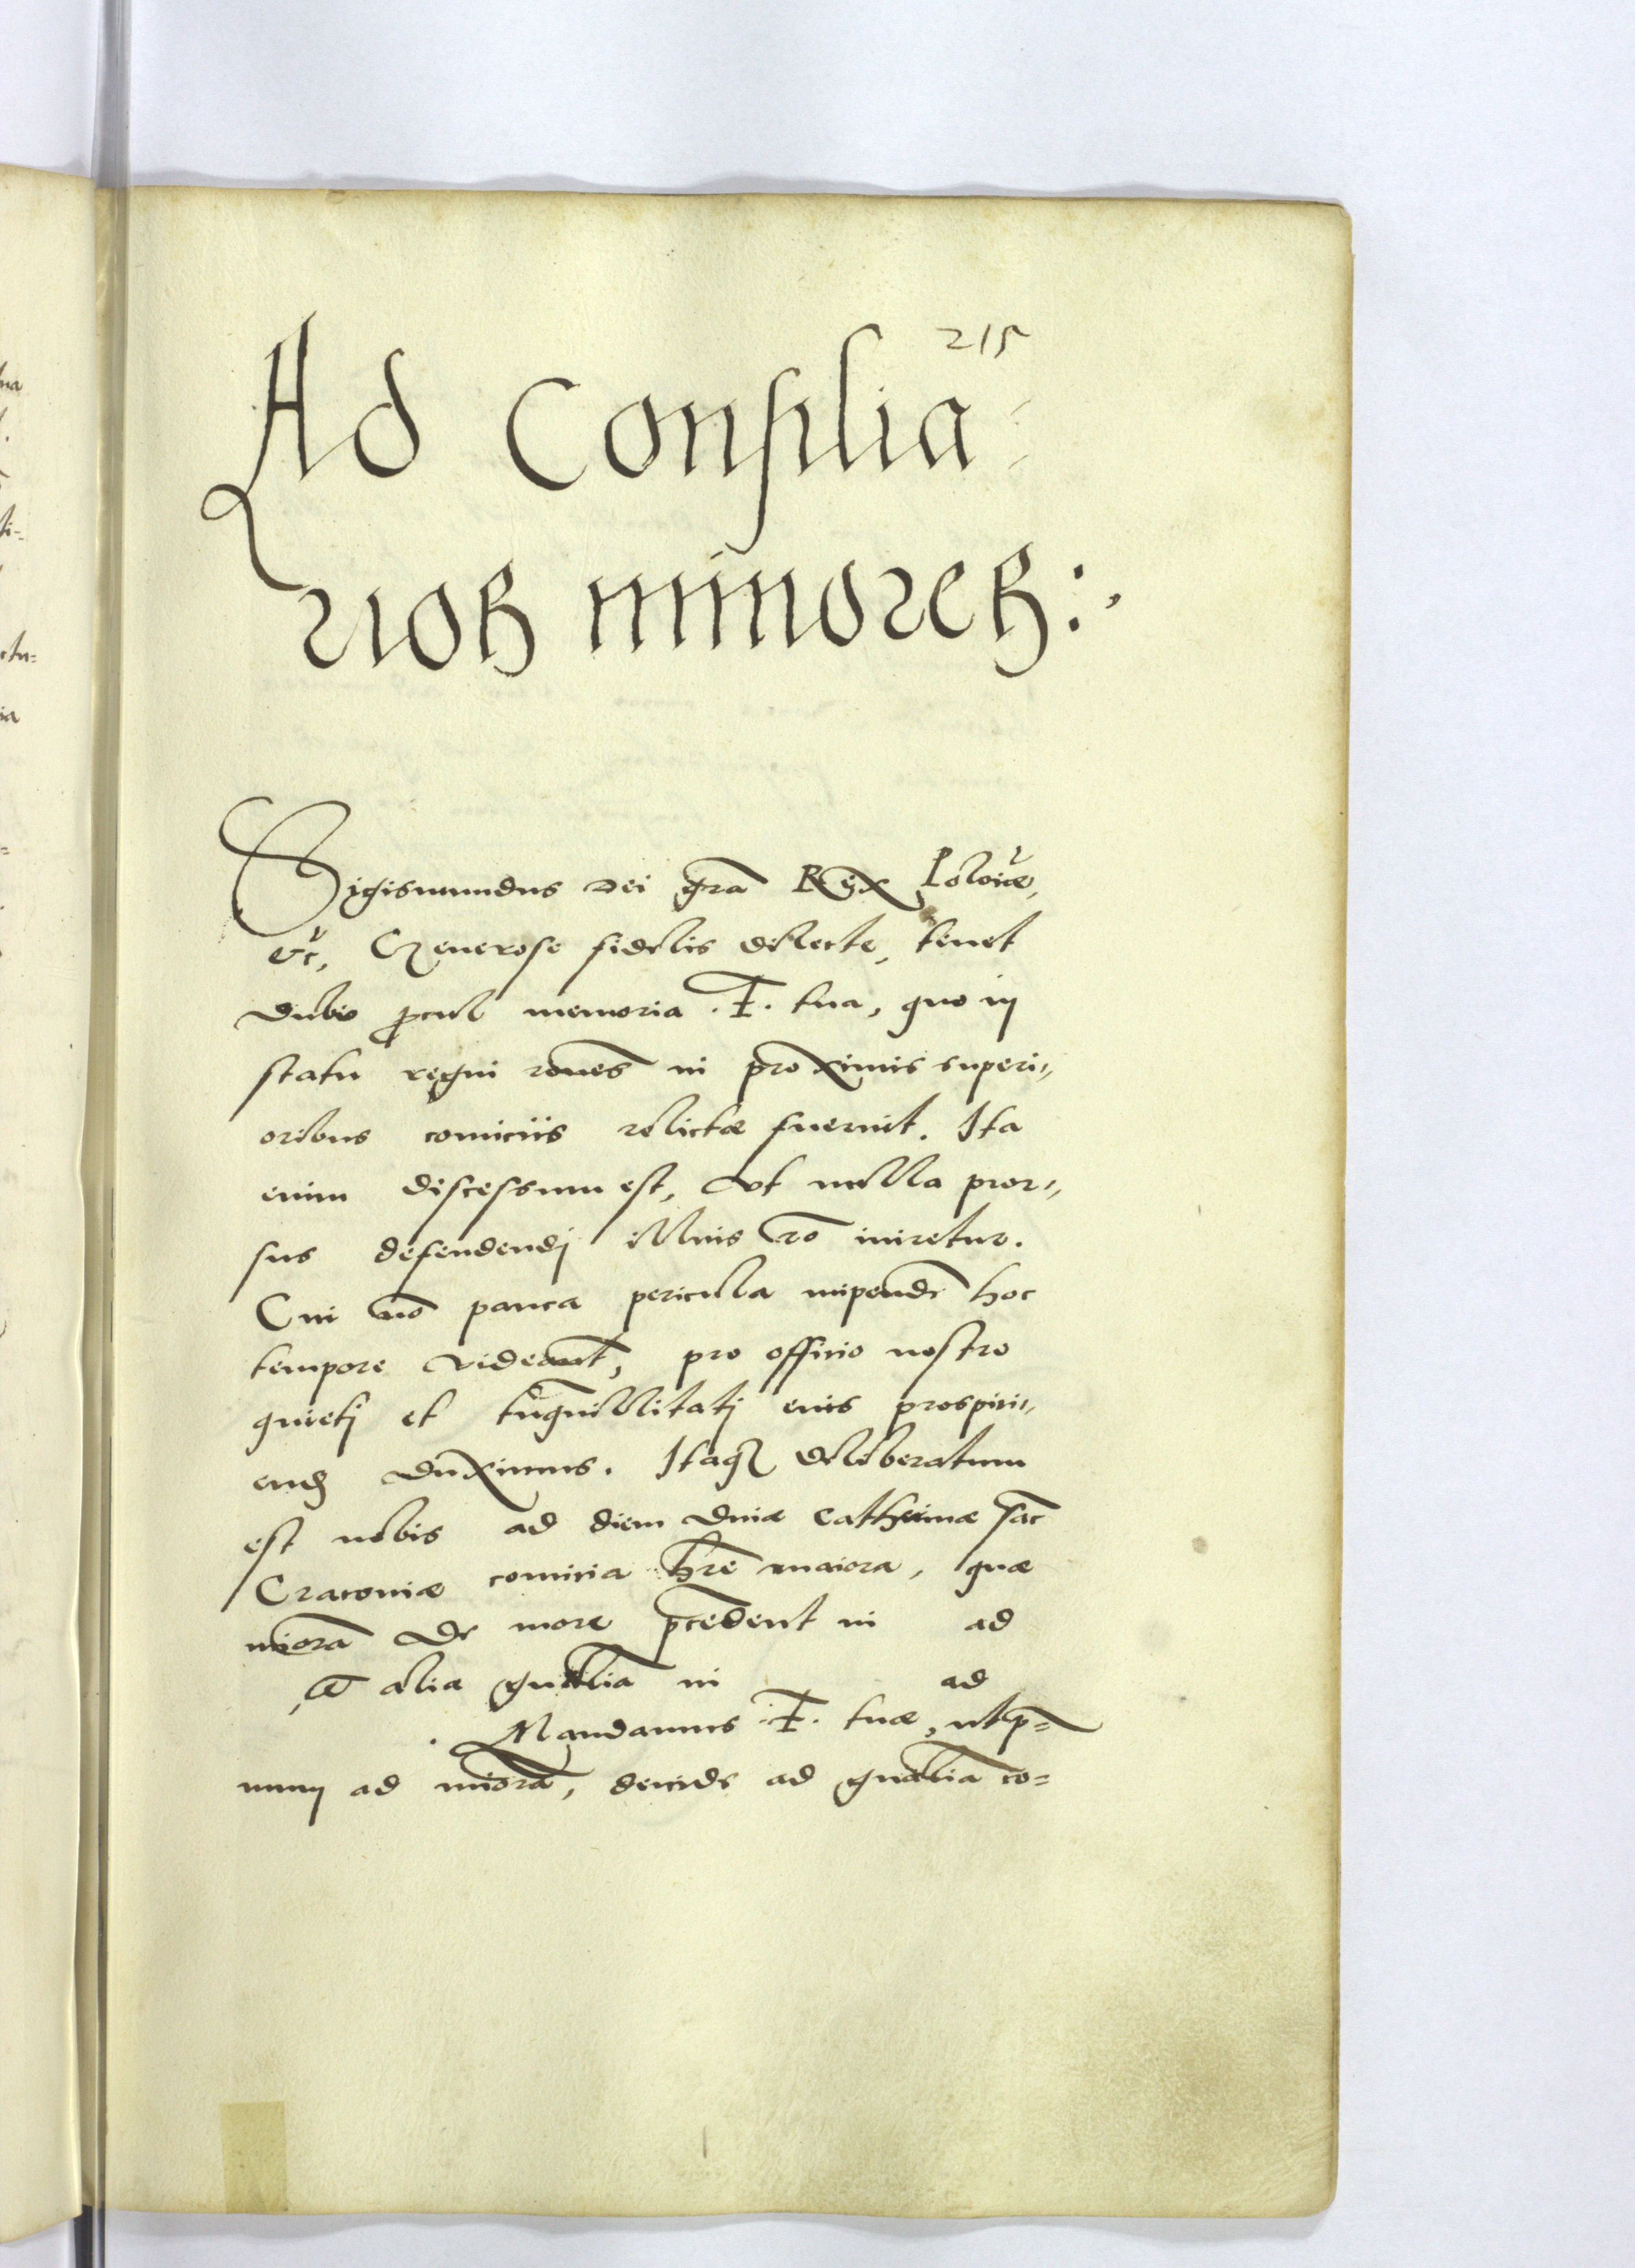 215
Ad Consilia=
rios minores:,
Sigismundus Dei gra Rex Poloniae,
etc, Generose fidelis dilecte, tenet
dubio procul memoria .F. tua, quo in
statu regni rones in proximis superi=
oribus comiciis relictae fuerint. Ita
enim discessum est, ut nulla pror=
sus defendendj illius ro iniretur.
Cui no pauca pericula impendere hoc
tempore videant, pro officio nostro
quietj et tranquillitatj eius prospici=
endum duximus. Itaque deliberatum
est nobis ad diem Diuae Catherinae sac
Cracoviae comicia hre maiora, quae
miora de more praecedent in ad
alia gnalia in ad
. Mandamus .F. tuae, ut p=
mum ad miora, deinde ad gnalia co=